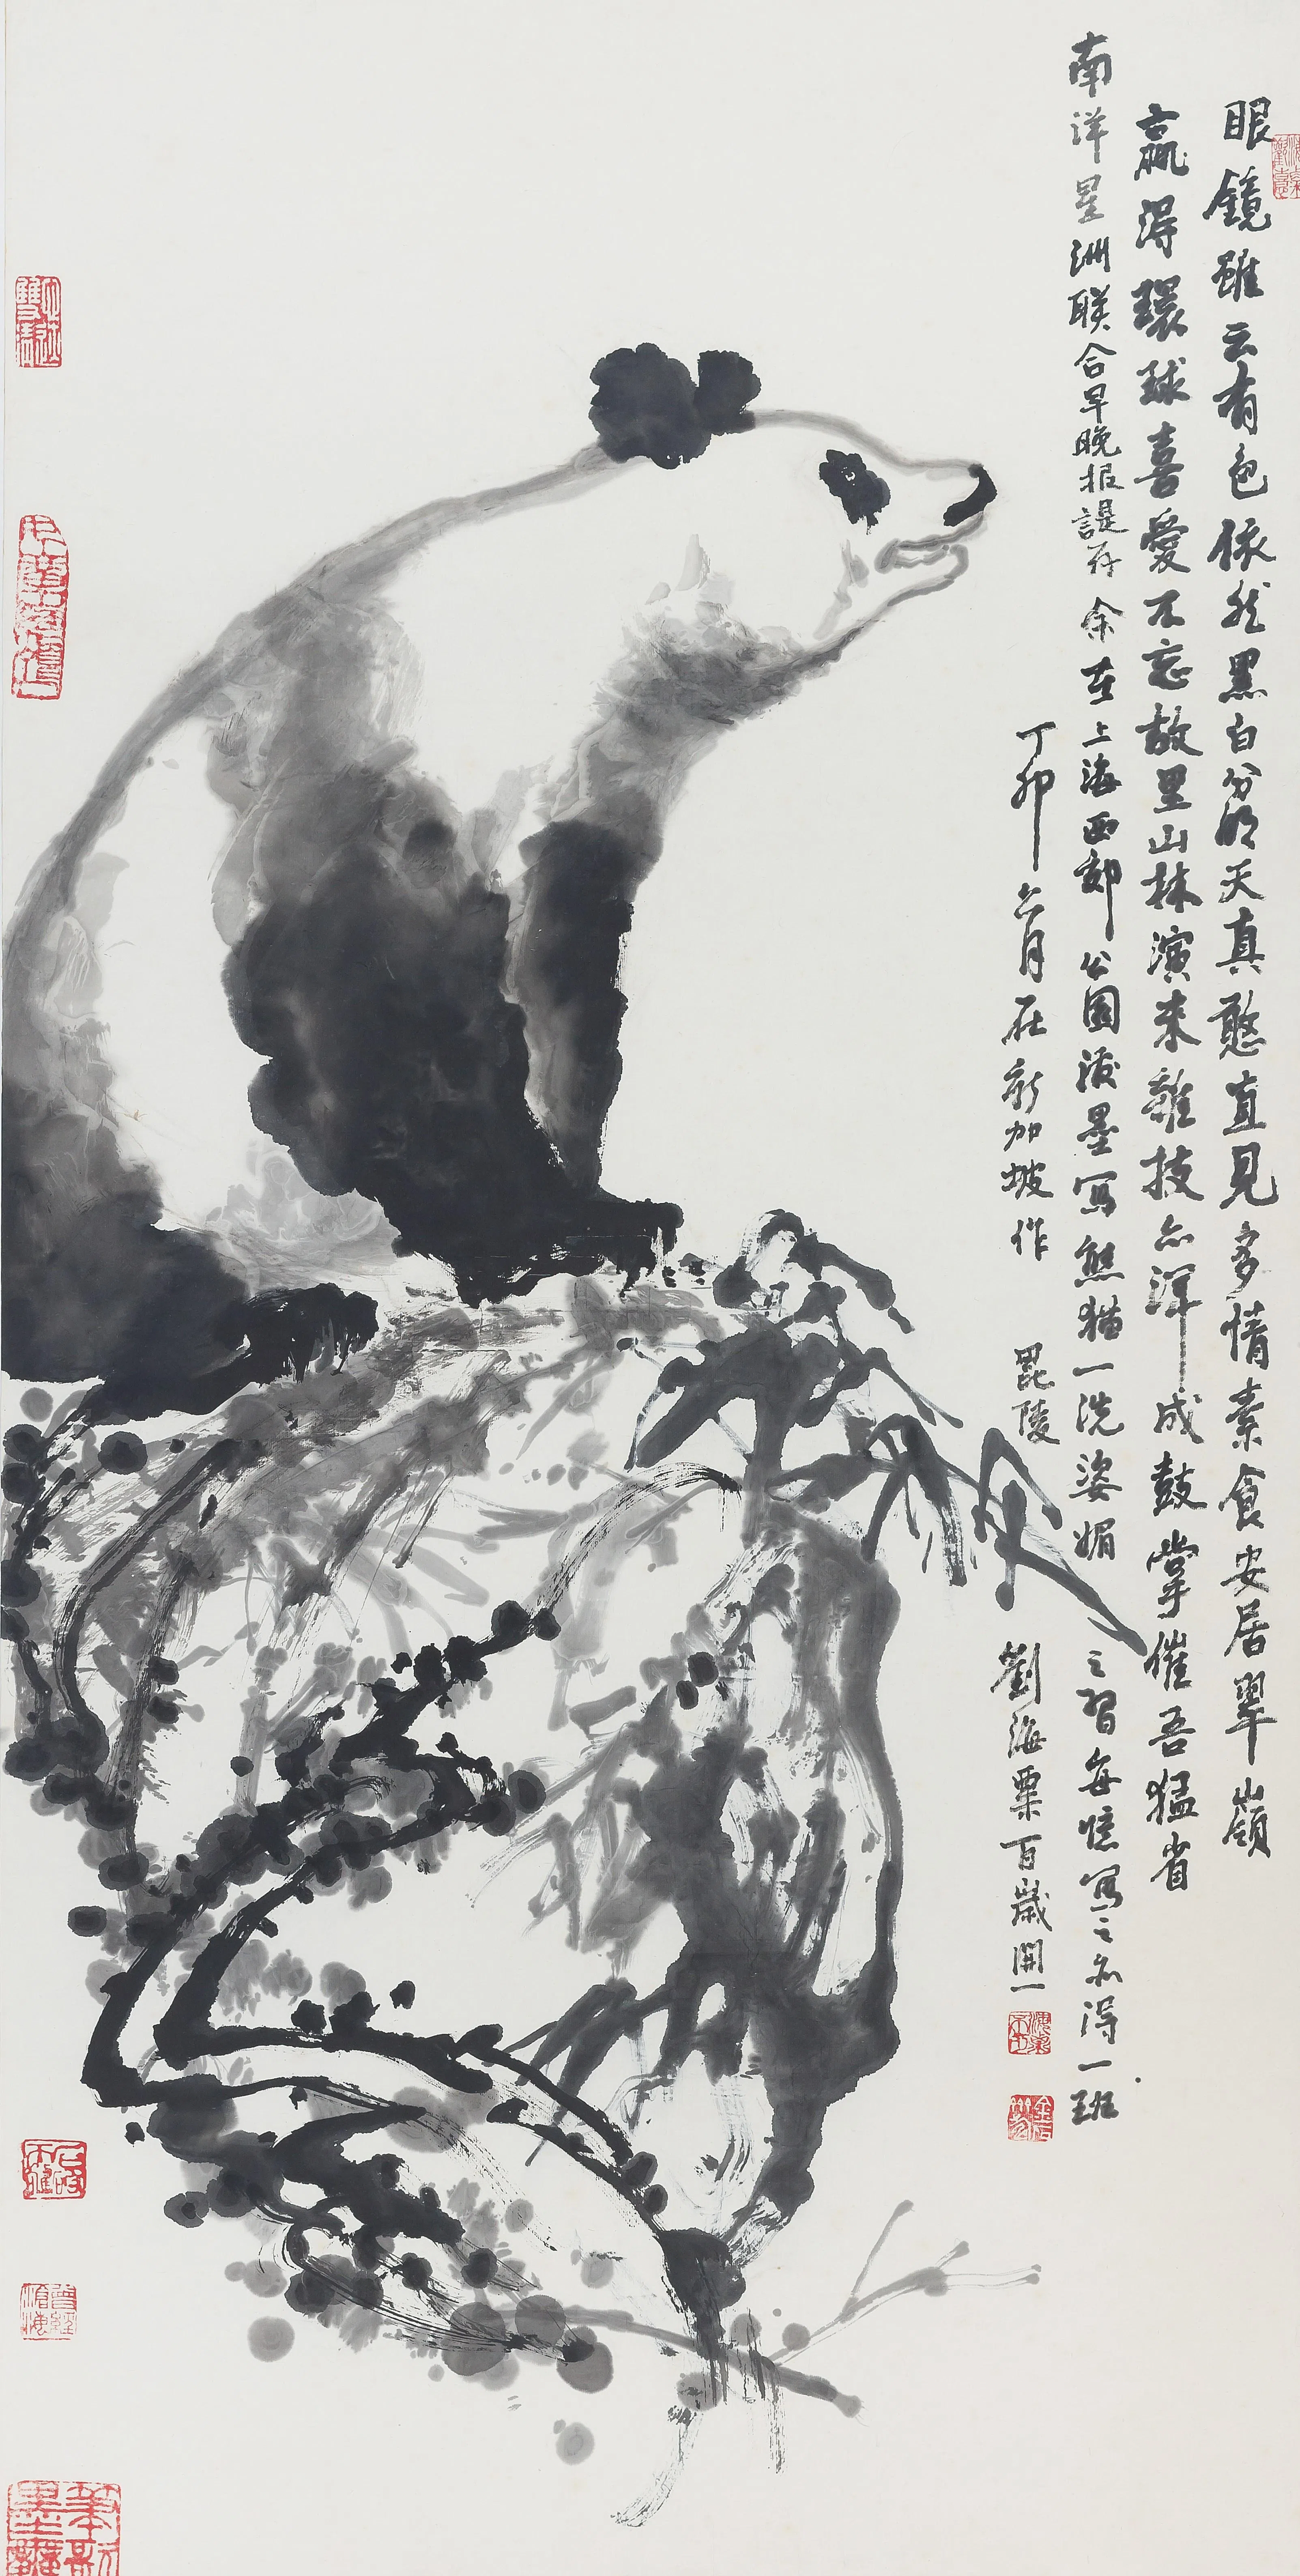 眼鏡雖云有色依然黑白分明天真憨直見多情素食安居翠嶺
贏得環球喜愛不忘故里山林演来雜技亦渾成鼓掌催吾猛省
南洋星洲联合早晚报諟存 余在上海西郊公園潑墨寫熊猫一洗姿媚之習每憶寫之亦得一班
丁卯六月在新加坡作 毘陵劉海粟百歲開一
海粟不朽
曾經滄海